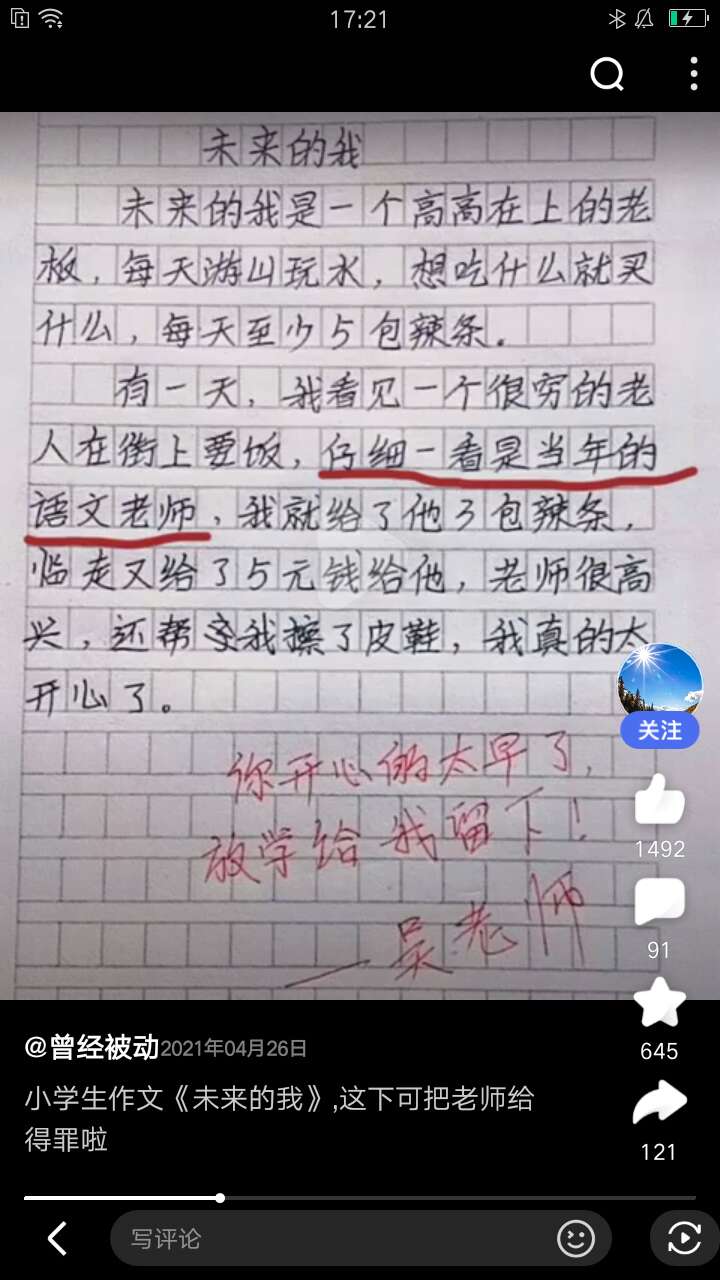 17:21
未来的我
未来的我是一个高高在上的老
板，每天游山玩水，想吃什么就买
什么，每天至少5包辣条。
有一天，我看见一个很穷的老
人在街上要饭，仔细一看是当年的
语文老师，我就给了他3包辣条，
临走又给了5元钱给他，老师很高
兴，还帮我擦了皮鞋，我真的太
开心了。
你开心的太早了，
放学给我留下！
——吴老师
关注
1492
91
645
121
@曾经被动2021年04月26日
小学生作文《未来的我》,这下可把老师给
得罪啦
写评论